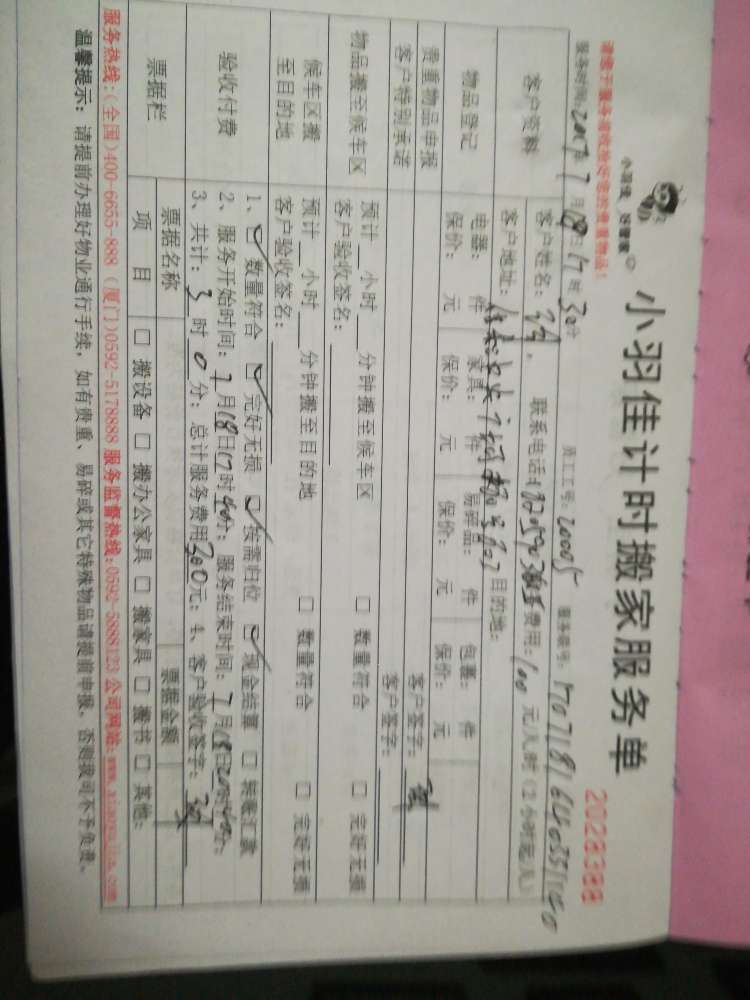 小羽佳 好管家
小羽佳计时搬家服务单
2028388
服务时间:2017年7月18日17时30分 员工工号:20005 服务编号:
客户资料
客户姓名: 联系电话: 费用:100元/人时(2小时起/人)
客户地址: 目的地:
物品登记
电器: 件 家具: 件 易碎品: 件 包裹: 件
保价: 元 保价: 元 保价: 元 保价: 元
贵重物品申报 客户签字:
客户特别承诺 客户签字:
物品搬至候车区
预计 小时 分钟搬至候车区 □ 数量符合 □ 完好无损
客户验收签名:
候车区搬至目的地
预计 小时 分钟搬至目的地 □ 数量符合 □ 完好无损
客户验收签名:
验收付费
1、☑ 数量符合 ☑ 完好无损 ☑ 按需归位 ☑ 现金结算 □ 转账汇款
2、服务开始时间:7月18日17时40分;服务结束时间:7月18日20时40分;
3、共计:3时0分;总计服务费用300元;4、客户验收签字:
票据栏
票据名称 票据金额
项 目 □ 搬设备 □ 搬办公家具 □ 搬家具 □ 搬书 □ 其他:
服务热线:(全国)400-6655-888 (厦门)0592-5178888 服务监督热线:0592-5888123 公司网站:www.xiaoyujia.com
温馨提示:请提前办理好物业通行手续,如有贵重、易碎或其它特殊物品请提前申报,否则我司不予负责。